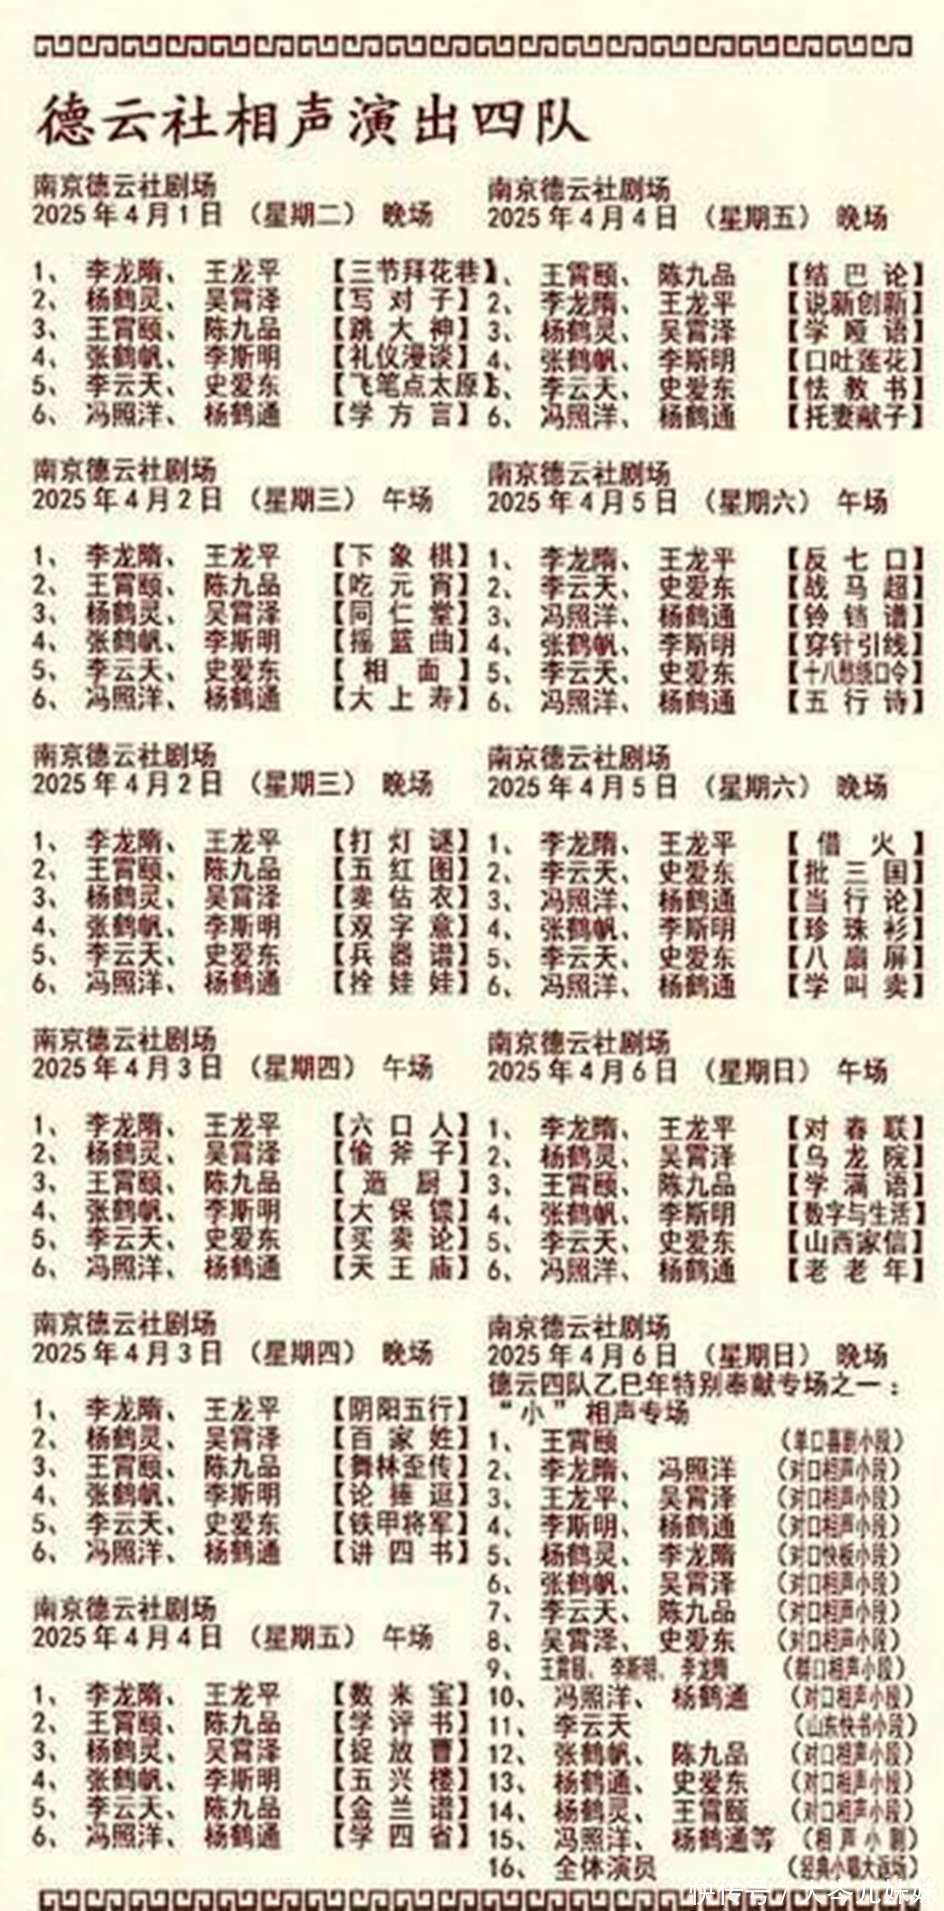 德云社相声演出四队
南京德云社剧场
2025年4月1日 （星期二） 晚场
1、 李龙隋、 王龙平 【三节拜花巷】
2、 杨鹤灵、 吴霄泽 【写对子】
3、 王霄颐、 陈九品 【跳大神】
4、 张鹤帆、 李斯明 【礼仪漫谈】
5、 李云天、 史爱东 【飞笔点太原】
6、 冯照洋、 杨鹤通 【学方言】
南京德云社剧场
2025年4月2日 （星期三） 午场
1、 李龙隋、 王龙平 【下象棋】
2、 王霄颐、 陈九品 【吃元宵】
3、 杨鹤灵、 吴霄泽 【同仁堂】
4、 张鹤帆、 李斯明 【摇篮曲】
5、 李云天、 史爱东 【相面】
6、 冯照洋、 杨鹤通 【大上寿】
南京德云社剧场
2025年4月2日 （星期三） 晚场
1、 李龙隋、 王龙平 【打灯谜】
2、 王霄颐、 陈九品 【五红图】
3、 杨鹤灵、 吴霄泽 【卖估衣】
4、 张鹤帆、 李斯明 【双字意】
5、 李云天、 史爱东 【兵器谱】
6、 冯照洋、 杨鹤通 【拴娃娃】
南京德云社剧场
2025年4月3日 （星期四） 午场
1、 李龙隋、 王龙平 【六口人】
2、 杨鹤灵、 吴霄泽 【偷斧子】
3、 王霄颐、 陈九品 【造厨】
4、 张鹤帆、 李斯明 【大保镖】
5、 李云天、 史爱东 【买卖论】
6、 冯照洋、 杨鹤通 【天王庙】
南京德云社剧场
2025年4月3日 （星期四） 晚场
1、 李龙隋、 王龙平 【阴阳五行】
2、 杨鹤灵、 吴霄泽 【百家姓】
3、 王霄颐、 陈九品 【舞林歪传】
4、 张鹤帆、 李斯明 【论捧逗】
5、 李云天、 史爱东 【铁甲将军】
6、 冯照洋、 杨鹤通 【讲四书】
南京德云社剧场
2025年4月4日 （星期五） 午场
1、 李龙隋、 王龙平 【数来宝】
2、 王霄颐、 陈九品 【学评书】
3、 杨鹤灵、 吴霄泽 【捉放曹】
4、 张鹤帆、 李斯明 【五兴楼】
5、 李云天、 陈九品 【金兰谱】
6、 冯照洋、 杨鹤通 【学四省】
南京德云社剧场
2025年4月4日 （星期五） 晚场
1、 王霄颐、 陈九品 【结巴论】
2、 李龙隋、 王龙平 【说新创新】
3、 杨鹤灵、 吴霄泽 【学哑语】
4、 张鹤帆、 李斯明 【口吐莲花】
5、 李云天、 史爱东 【怯教书】
6、 冯照洋、 杨鹤通 【托妻献子】
南京德云社剧场
2025年4月5日 （星期六） 午场
1、 李龙隋、 王龙平 【反七口】
2、 李云天、 史爱东 【战马超】
3、 冯照洋、 杨鹤通 【铃铛谱】
4、 张鹤帆、 李斯明 【穿针引线】
5、 李云天、 史爱东 【十八愁绕口令】
6、 冯照洋、 杨鹤通 【五行诗】
南京德云社剧场
2025年4月5日 （星期六） 晚场
1、 李龙隋、 王龙平 【借火】
2、 李云天、 史爱东 【批三国】
3、 冯照洋、 杨鹤通 【当行论】
4、 张鹤帆、 李斯明 【珍珠衫】
5、 李云天、 史爱东 【八扇屏】
6、 冯照洋、 杨鹤通 【学叫卖】
南京德云社剧场
2025年4月6日 （星期日） 午场
1、 李龙隋、 王龙平 【对春联】
2、 杨鹤灵、 吴霄泽 【乌龙院】
3、 王霄颐、 陈九品 【学满语】
4、 张鹤帆、 李斯明 【数字与生活】
5、 李云天、 史爱东 【山西家信】
6、 冯照洋、 杨鹤通 【老老年】
南京德云社剧场
2025年4月6日 （星期日） 晚场
德云四队乙巳年特别奉献专场之一：
“小”相声专场
1、 王霄颐 （单口喜剧小段）
2、 李龙隋、 冯照洋 （对口相声小段）
3、 王龙平、 吴霄泽 （对口相声小段）
4、 李斯明、 杨鹤通 （对口相声小段）
5、 杨鹤灵、 李龙隋 （对口快板小段）
6、 张鹤帆、 吴霄泽 （对口相声小段）
7、 李云天、 陈九品 （对口相声小段）
8、 吴霄泽、 史爱东 （对口相声小段）
9、 王霄颐、 李斯明、 李龙隋 （群口相声小段）
10、 冯照洋、 杨鹤通 （对口相声小段）
11、 李云天 （山东快书小段）
12、 张鹤帆、 陈九品 （对口相声小段）
13、 杨鹤通、 史爱东 （对口相声小段）
14、 杨鹤灵、 王霄颐 （对口相声小段）
15、 冯照洋、 杨鹤通等 （相声小剧）
16、 全体演员 （经典小唱大返场）
快传号/大